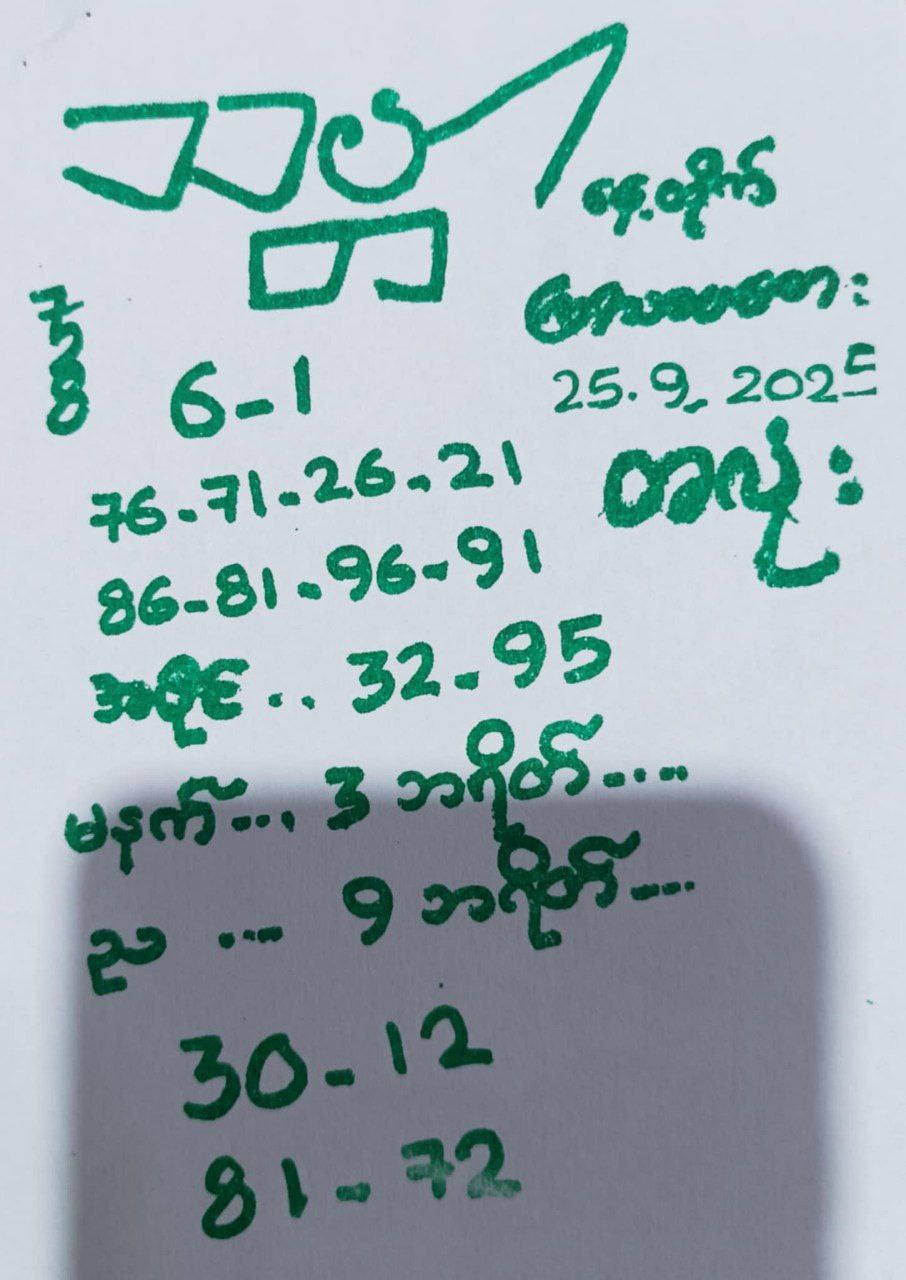 နေ့တိုက်
ကြာသပတေး
25.9_2025
တစ်လုံး
6-1
76-71-26-21
86-81-96-91
အပိုင်.. 32-95
မနက်.... 3 ဘရိတ်....
ည .... 9 ဘရိတ်....
30-12
81-72